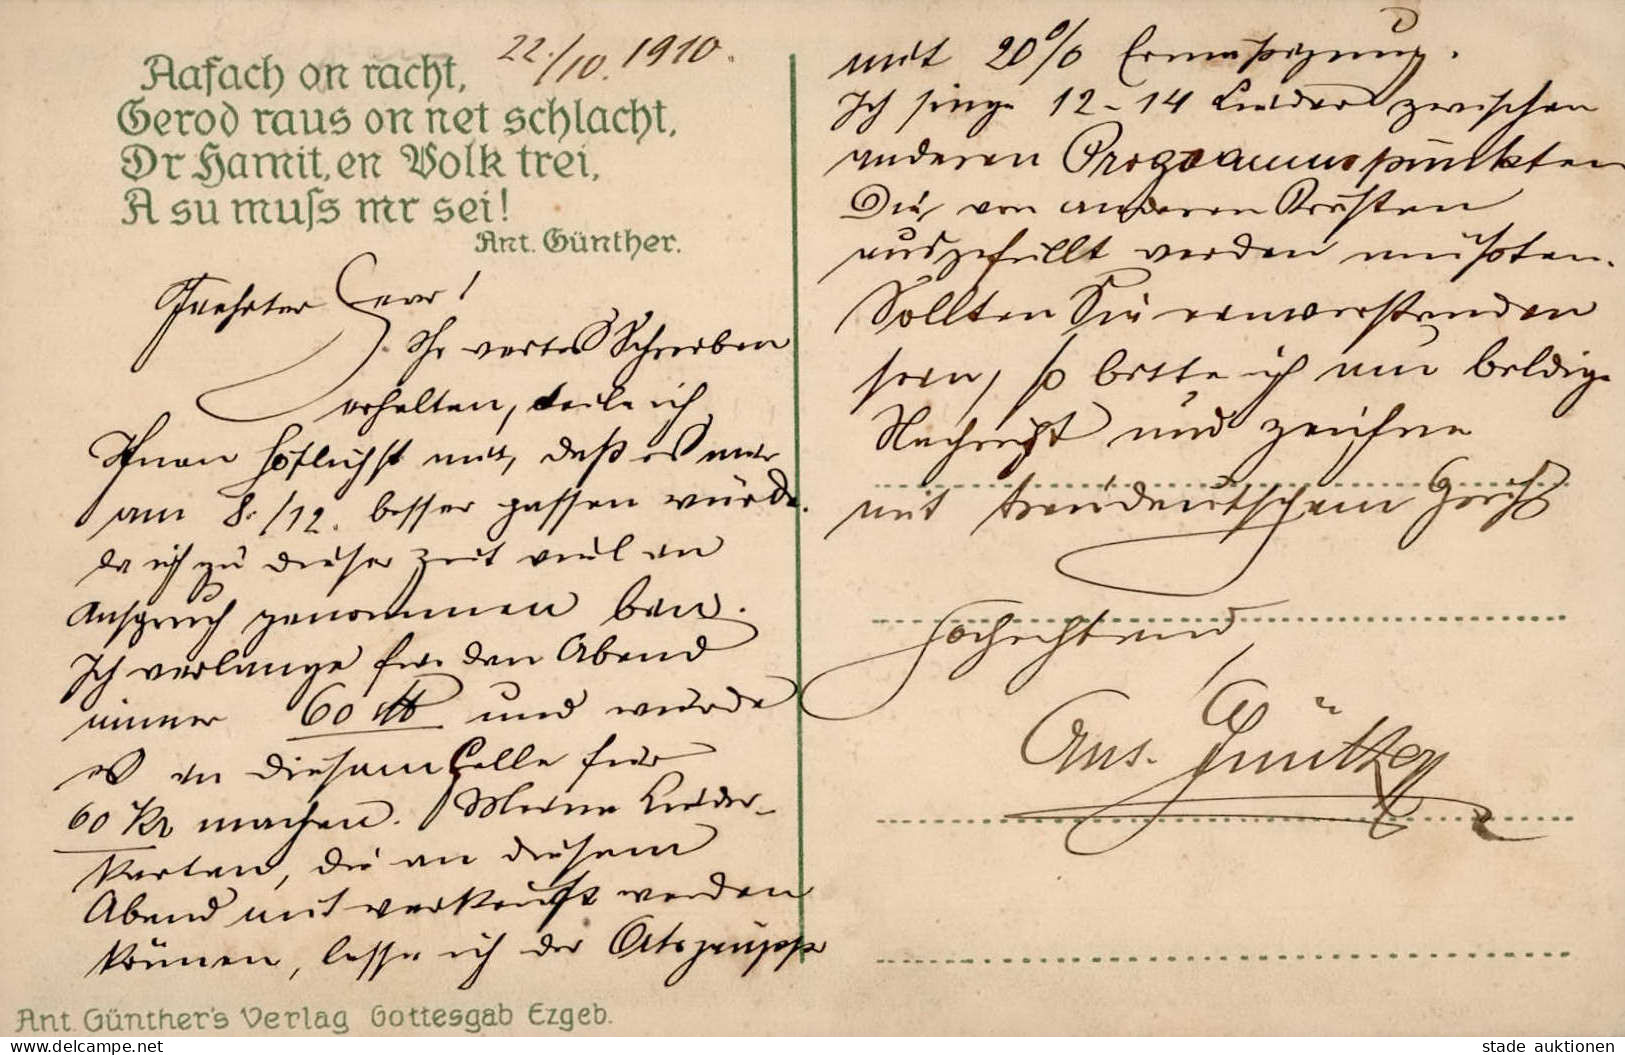 22./10. 1910.
Aafach on racht,
Gerod raus on net schlacht,
Dr Hamit, en Volk trei,
A su muſs mr sei!
Ant. Günther.
Geehrter Herr!
Ihr wertes Schreiben
erhalten, teile ich
Ihnen höflichst mit, daß es mir
am 8./12. besser passen würde.
da ich zu dieser Zeit viel in
Anspruch genommen bin.
Ich verlange für den Abend
immer 60 M und würde
es in diesem Falle für
60 Kr machen. Meine Lieder-
karten, die an diesem
Abend mit verkauft werden
können, lasse ich der Ortsgruppe
mit 20% Ermäßigung.
Ich singe 12-14 Lieder zwischen
anderen Programmpunkten
Die von anderen Kräften
ausgefüllt werden müßten.
Sollten Sie einverstanden
sein, so bitte ich um baldige
Nachricht und zeichne
mit treudeutschem Gruß
Hochachtend
Ant. Günther
Ant. Günther's Verlag Gottesgab Ezgeb.
stade auktionen
www.delcampe.net